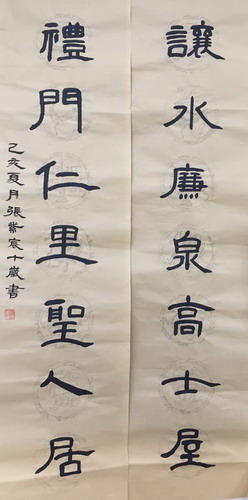 讓水廉泉高士屋
禮門仁里聖人居
乙亥夏月張紫宸十歲書